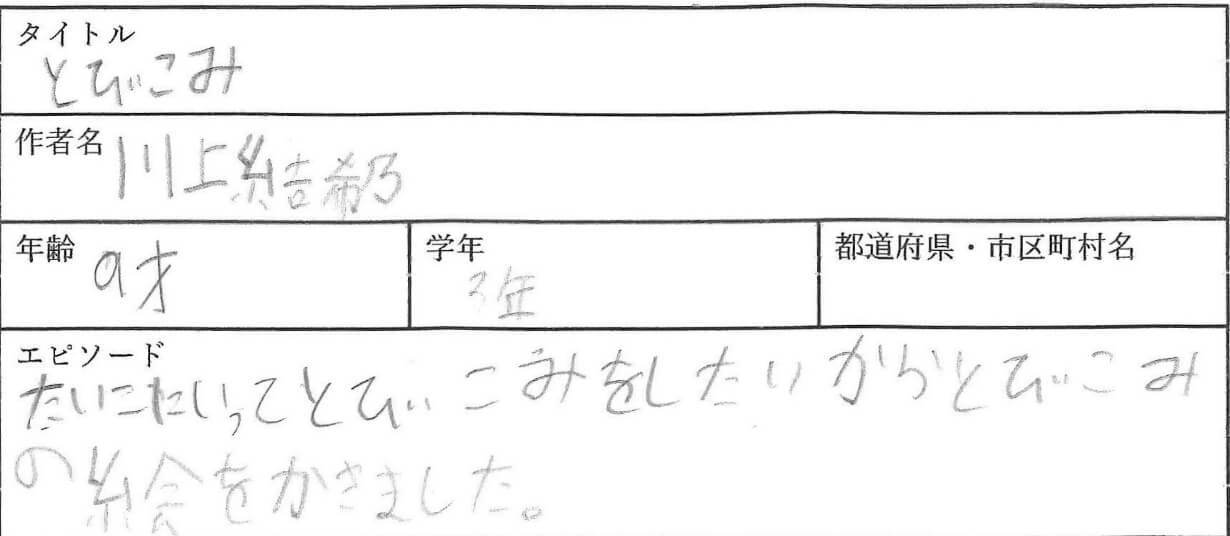 タイトル
とびこみ
作者名 川上結希乃
年齢 9才
学年 3年
都道府県・市区町村名
エピソード
たいこたいってとびこみをしたいからとびこみ
の絵をかきました。